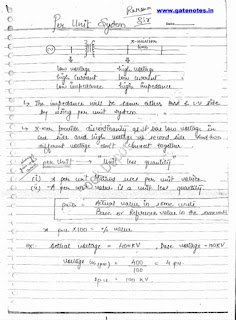 www.gatenotes.in
Per Unit System
Date
X-mission
lines
low voltage high voltage
high current low current
low impedance high impedance
↳ The impedance will be same either and L.V side
by using per unit system.
↳ X-mer provides discontinuity as it has low voltage in
one side and high voltage at second side
different voltage can't connect together
per Unit → Unit less quantity
(i) A per unit values are per unit values
(ii) A per unit value is a unit less quantity.
p.u = Actual value in some units
Base or reference value in the same units
* p.u × 100 = % value
ex. Actual voltage = 400 KV , Base voltage = 100 KV
voltage in (pu) = 400 = 4 pu
100
1 pu = 100 KV